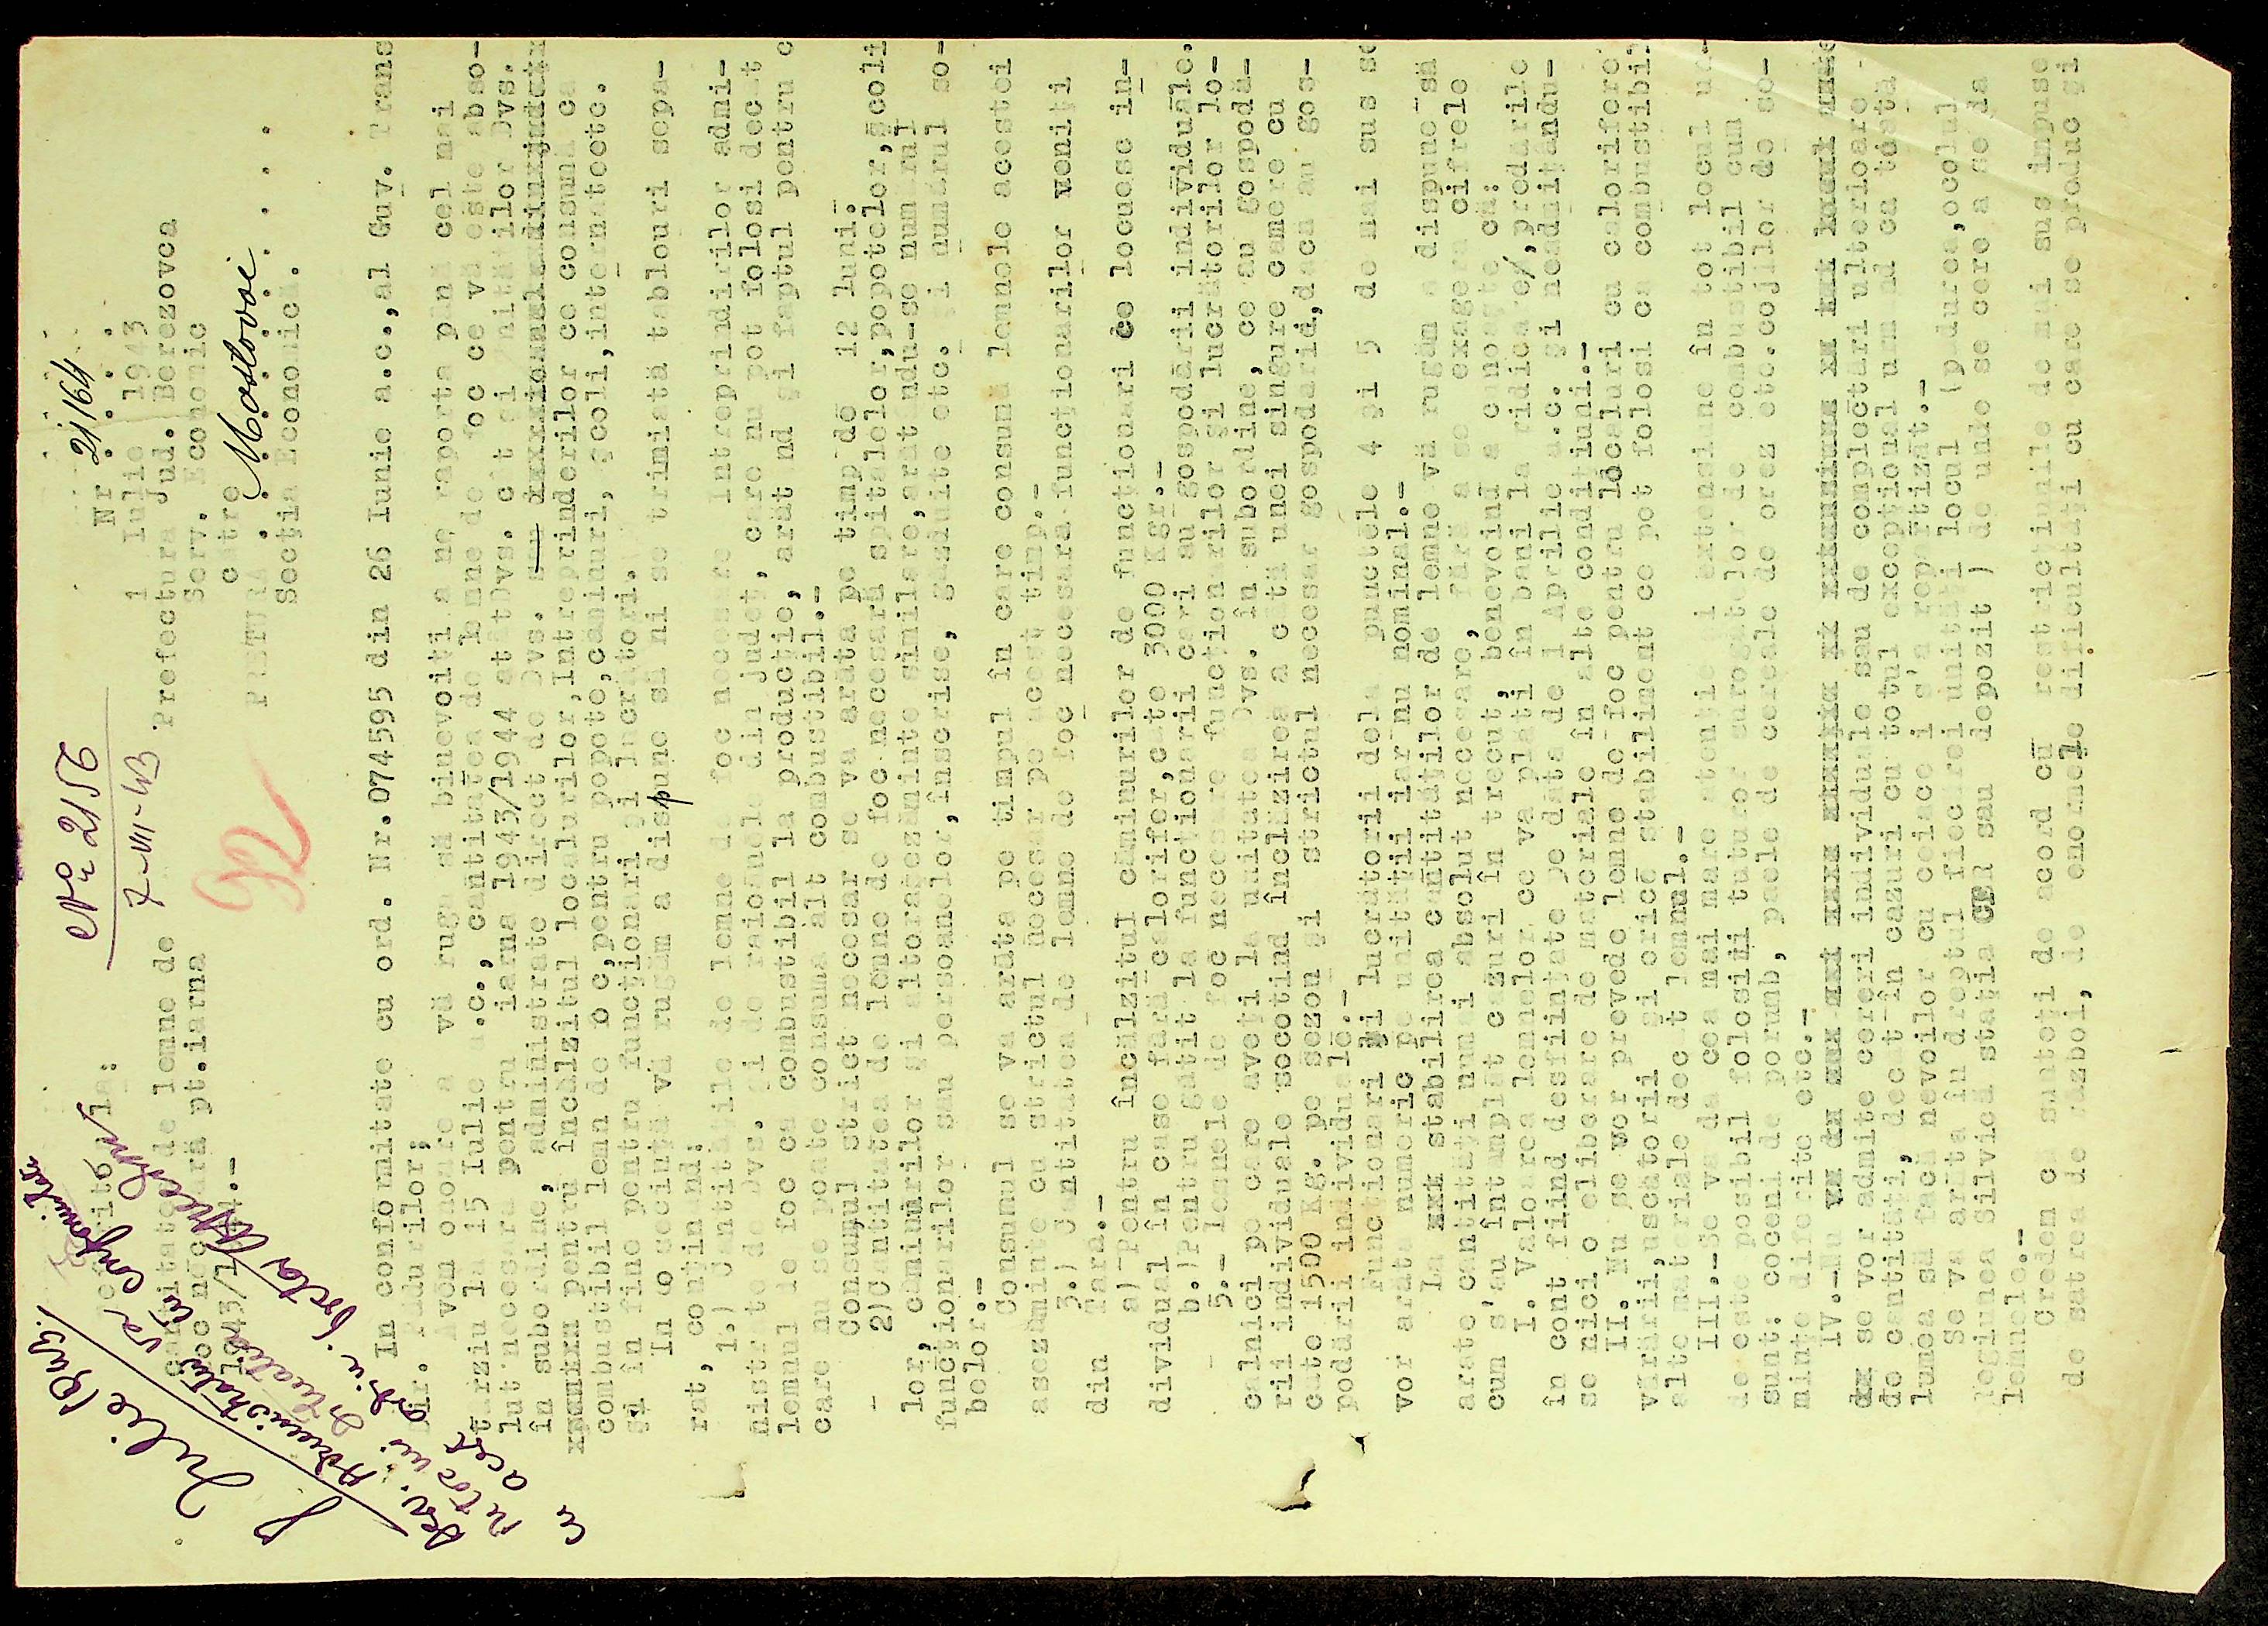 No 2156
7-VII-43
92
Nr. 21164
1 Iulie 1943
Prefectura Jud. Berezovca
Serv. Economic
către
PRETURA Mostovoi
Secţia Economică.
cantitate de lemne de
foc necesară pt.iarna
1943/1944.-
In conformitate cu ord. Nr.074595 din 26 Iunie a.c.,al Guv. Trans
Dir. Pădurilor;
Avem onoare a vă ruga să binevoiţi a ne raporta până cel mai
târziu la 15 Iulie a.c., cantitatea de lemne de foc ce vă este abso-
lut necesară pentru iarna 1943/1944 atât Dvs. cât şi unităţilor Dvs.
în subordine, administrate direct de Dvs.
pentru încălzitul localurilor,întreprinderilor ce consumă ca
combustibil lemn de foc,pentru popote,căminuri,şcoli,internatecte.
şi în fine pentru funcţionari şi lucrători.
In consecinţă vă rugăm a dispune să ni se trimistă tablouri sepa-
rat, conţinând:
1.) Cantităţile de lemne de foc necesare întreprindirilor admi-
nistrate de Dvs. şi de raioanele din judeţ, care nu pot folosi decât
lemnul de foc ca combustibil la producţie, arătând şi faptul pentru c
care nu se poate consuma alt combustibil.-
Consumul strict necesar se va arăta pe timp de 12 luni.
- 2)Cantitatea de lemne de foc necesară spitalelor,popotelor,şcoli
lor, căminurilor şi altoraşezăminte similare,arătându-se numărul
funcţionarilor sau persoanelor,înscrise, găzduite etc. şi numărul so-
belor.-
Consumul se va arăta pe timpul în care consumă lemnele acestei
aşezăminte cu strictul necesar pe acest timp.-
3.) Cantitatea de lemne de foc necesara funcţionarilor veniţi
din Tara.-
a) Pentru încălzitul căminurilor de funcţionari ce locuesc in-
dividual în case fară calorifer,câte 3000 Kgr.-
b.)Pentru gătit la funcţionarii cari au gospodării individuale.
5.- lemnele de foc necesare funcţionarilor şi lucrătorilor lo-
calnici pe care aveţi la unitatea Dvs. în subordine, ce au gospodă-
rii individuale socotind încălzirea a câtă unei singure camere cu
câte 1500 Kg. pe sezon şi strictul necesar gospodariă,daca au gos-
podării individuale.-
Funcţionari şi lucrătorii dela punctele 4 şi 5 de mai sus se
vor arăta numeric pe unităţii iar nu nominal.-
La stabilirea cantităţilor de lemne vă rugăm a dispune să
arate cantităţi numai absolut necesare, fără a se exagera cifrele
cum s'au întâmplat cazuri în trecut, benevoind a cunoaşte că:
I. Valoarea lemnelor ce va plati în bani la ridicare/,predările
în cont fiind desfiinţate pe data de 1 Aprilie a.c. şi neadmiţându-
se nici o eliberare de materiale în alte condiţiuni.-
II. Nu se vor prevede lemne de foc pentru localuri cu calorifere
vărării,uscatorii şi orice stabiliment ce pot folosi ca combustibil
alte materiale decât lemnul.-
III.-Se va da cea mai mare atenţie şi extensiune în tot locul un-
de este posibil folosiii tuturor surogatelor de combustibil cum
sunt: coceni de porumb, paele de cereale de orez etc.cojilor de so-
minţe diferite etc.-
IV.-Nu
se vor admite cereri individuale sau de complectări ulterioare
de cantităţi, decât în cazuri cu totul excepţional urmând ca toată
lumea să facă nevoilor cu ceiace i s'a repartizat.-
Se va arăta în dreptul fiecărei unităţi locul (pădurea,ocolul
regiunea Silvică staţia CFR sau depozit ) de unke se cere a se da
lemnele.-
Credem ca sunteţi de acord cu restricţiunile de mai sus impuse
de starea de război, de enormele dificultăţi cu care se produc şi